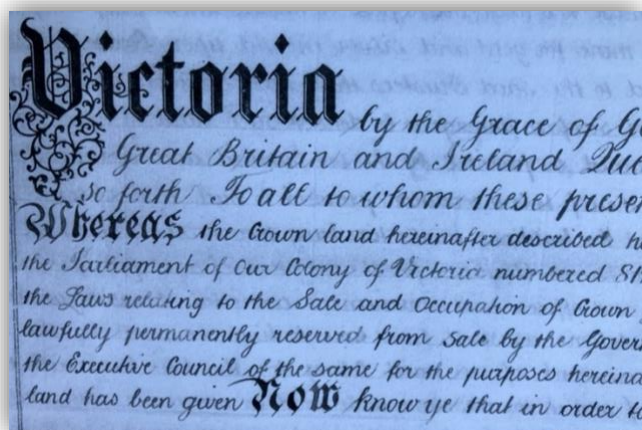 Victoria by the Grace of G
Great Britain and Ireland Que
so forth To all to whom these presen
Whereas the Crown land hereinafter described h
the Parliament of Our Colony of Victoria numbered
the Laws relating to the Sale and Occupation of Crown
lawfully permanently reserved from Sale by the Govern
the Executive Council of the same for the purposes hereina
land has been given Now know ye that in order to